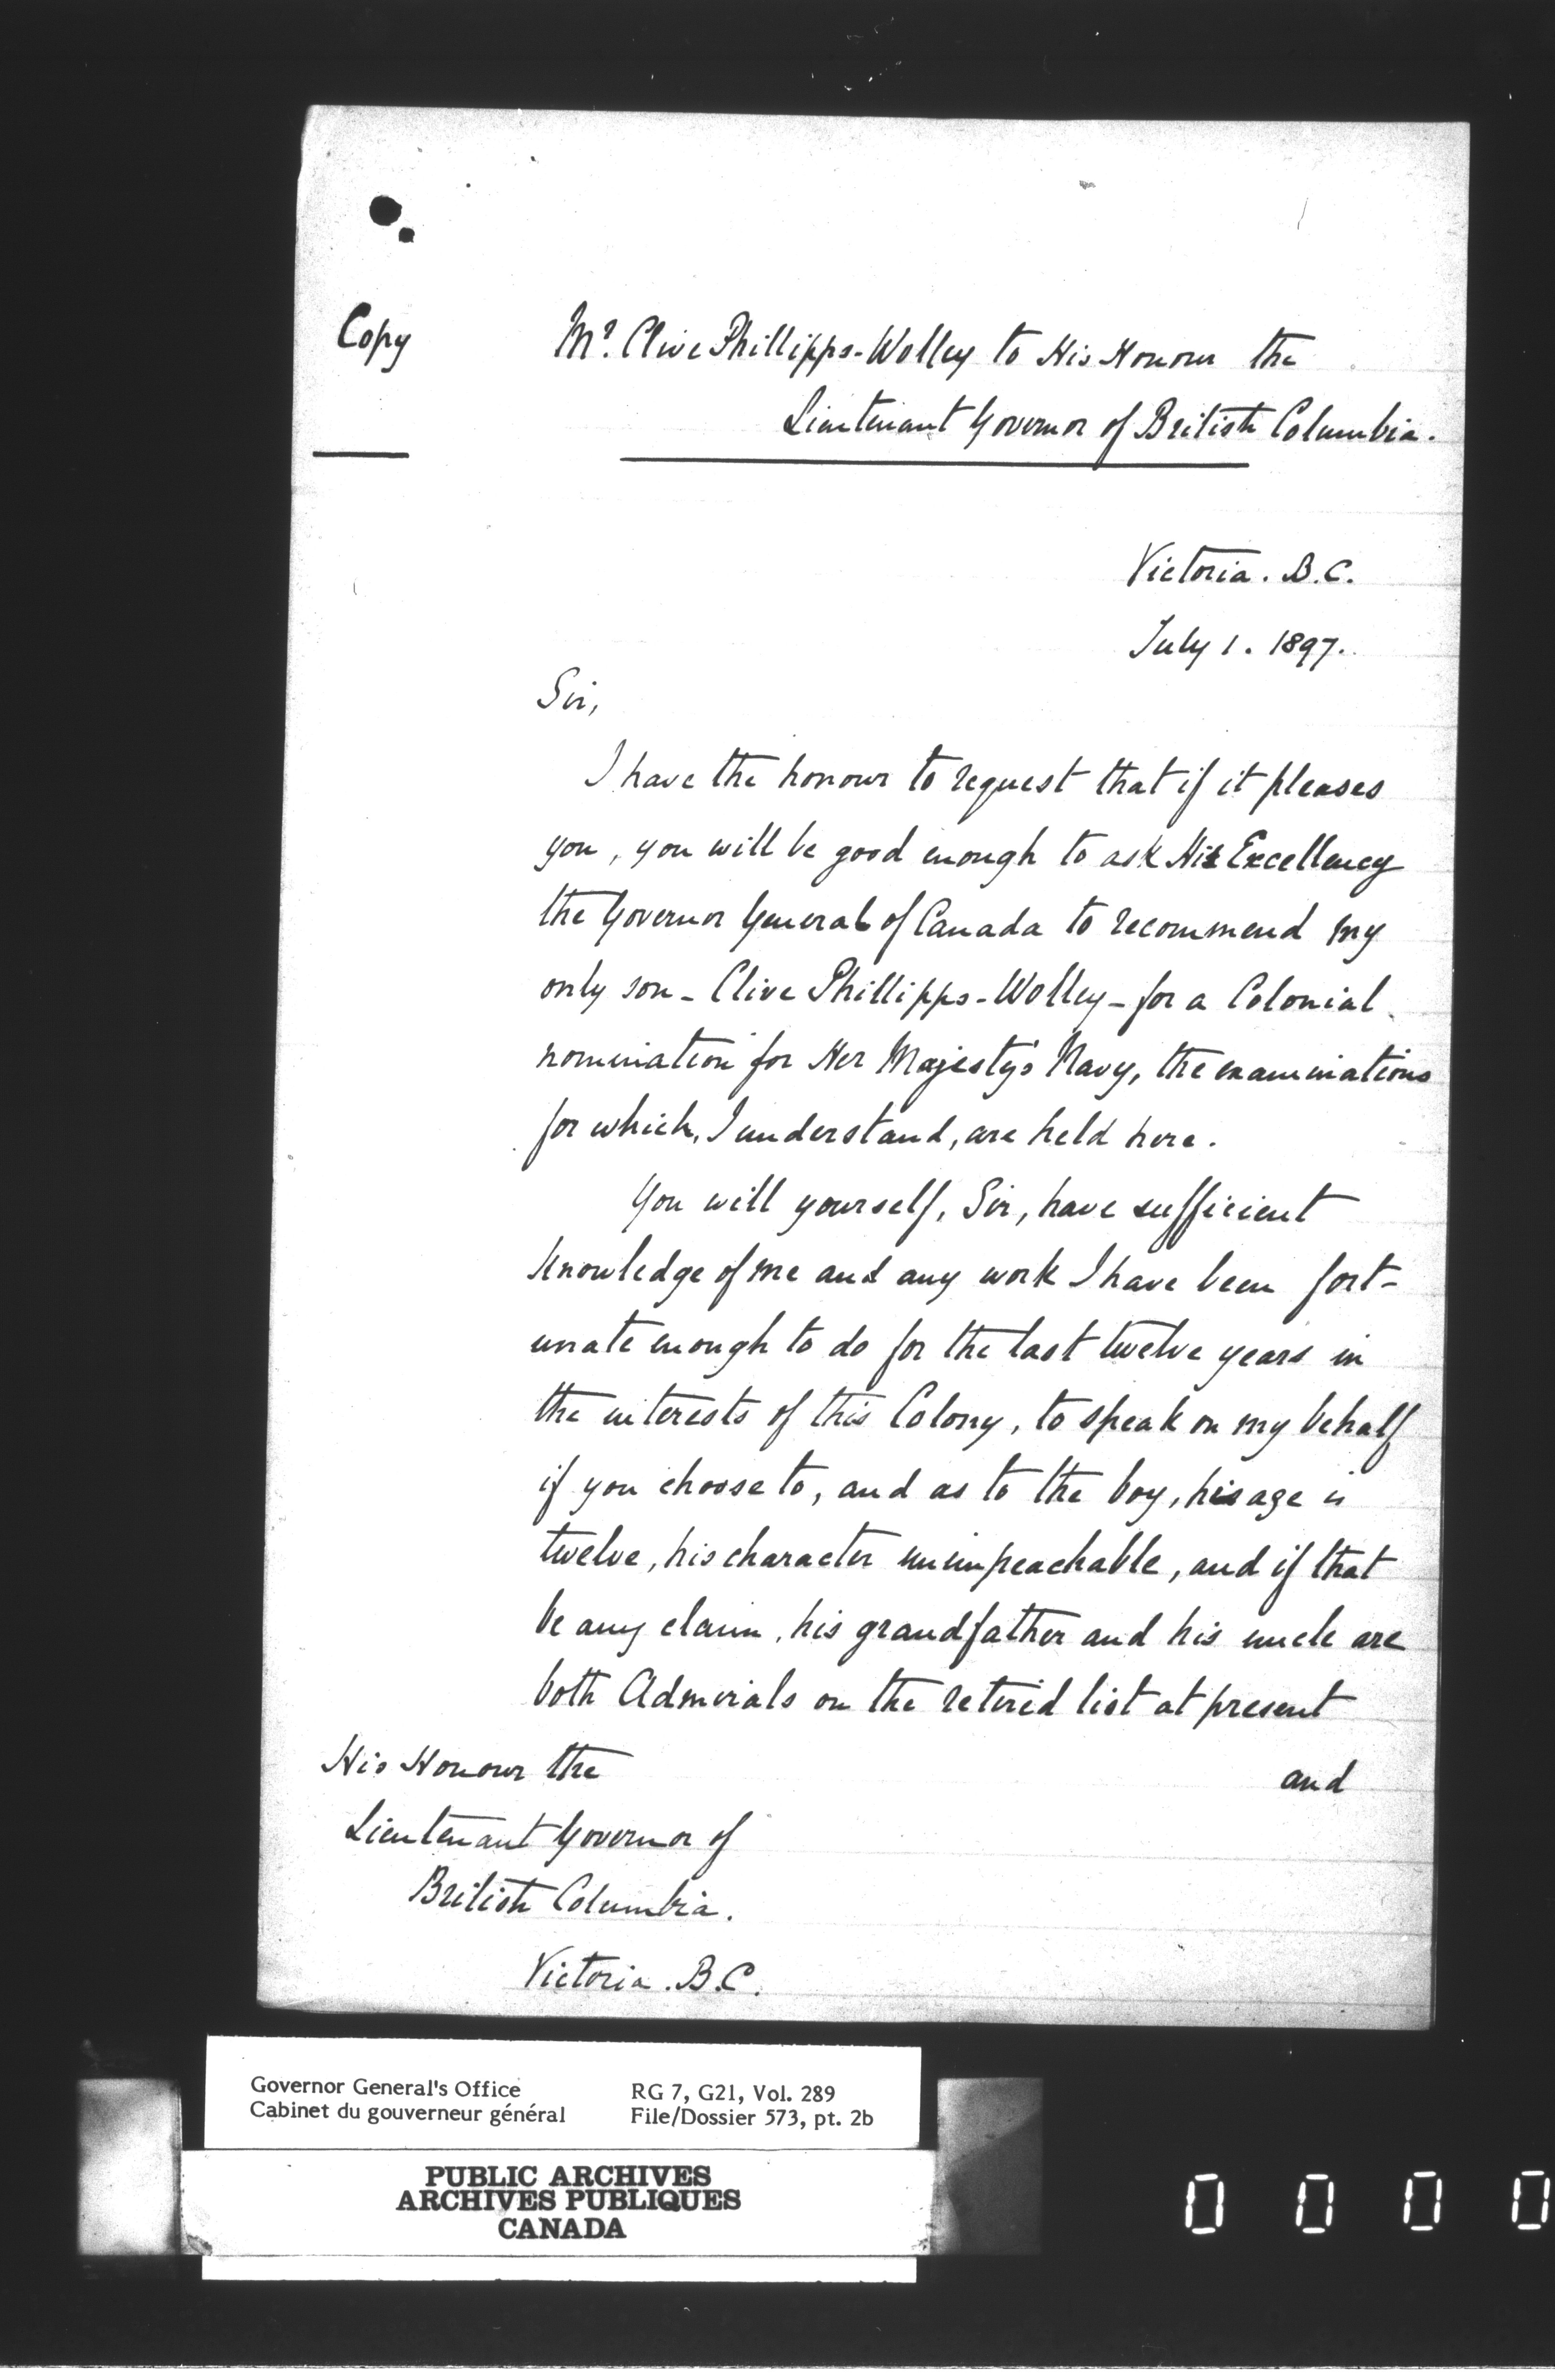 Copy
Mr. Clive Phillipps-Wolley to His Honour the
Lieutenant Governor of British Columbia.
Victoria. B.C.
July 1. 1897.
Sir,
I have the honour to request that if it pleases
you, you will be good enough to ask His Excellency
the Governor General of Canada to recommend my
only son - Clive Phillipps-Wolley - for a Colonial
nomination for Her Majesty's Navy, the examinations
for which, I understand, are held here.
You will yourself, Sir, have sufficient
knowledge of me and any work I have been fort-
unate enough to do for the last twelve years in
the interests of this Colony, to speak on my behalf
if you choose to, and as to the boy, his age is
twelve, his character unimpeachable, and if that
be any claim, his grandfather and his uncle are
both Admirals on the retired list at present
and
His Honour the
Lieutenant Governor of
British Columbia.
Victoria. B.C.
Governor General's Office
Cabinet du gouverneur général
RG 7, G21, Vol. 289
File/Dossier 573, pt. 2b
PUBLIC ARCHIVES
ARCHIVES PUBLIQUES
CANADA
0 0 0 0